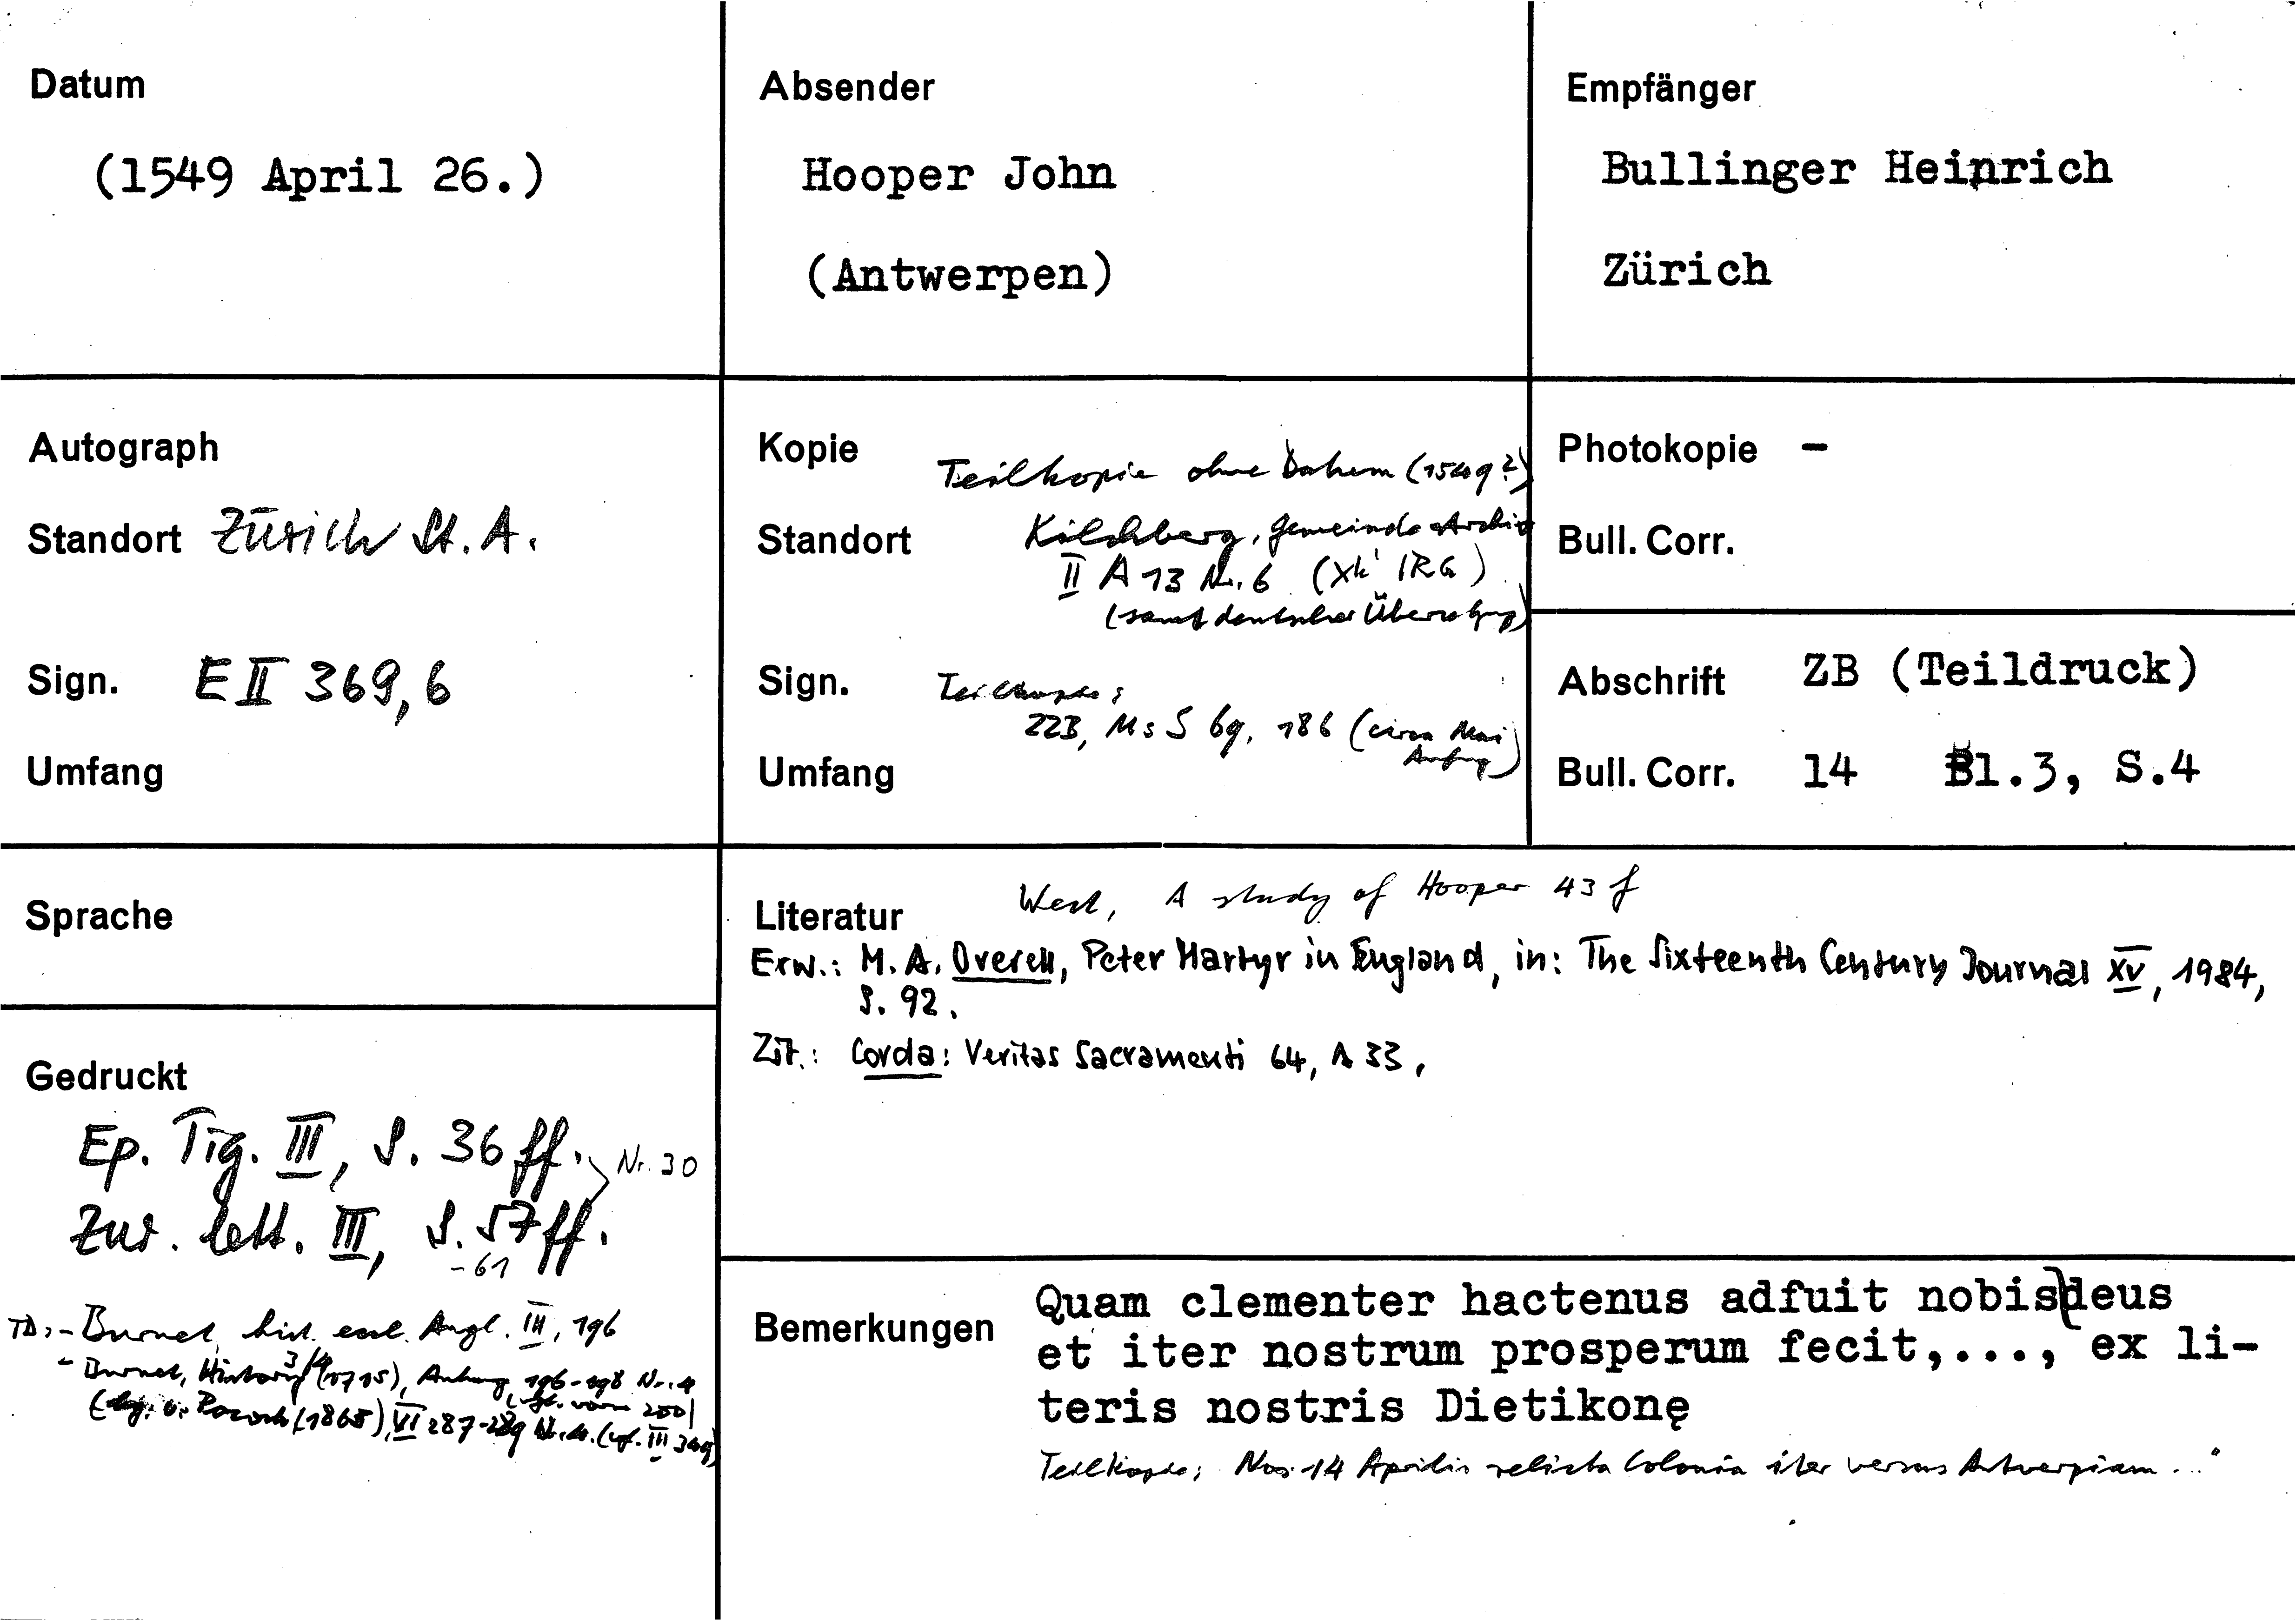 Datum
(1549 April 26.)
Absender
Hooper John
(Antwerpen)
Empfänger
Bullinger Heinrich
Zürich
Autograph
Standort Zürich St. A.
Sign. E II 369,6
Umfang
Kopie Teilkopie ohne Datum (1549?)
Standort Kilchberg, Gemeinde-Archiv
II A 13 Nr. 6 (Xk' IRG)
(samt deutscher Übersetzung)
Sign. Teilkopie:
ZZB, Ms S 69, 186 (circa Mai
Anfang)
Umfang
Photokopie -
Bull. Corr.
Abschrift ZB (Teildruck)
Bull. Corr. 14 Bl.3, S.4
Sprache
Gedruckt
Ep. Tig. III, S. 36 ff. Nr. 30
Zur. lett. III, S. 57 ff.
-61
TD: - Burnet, hist. eccl. Angl. III, 196
- Burnet, History 3/4 (1715), Anhang 196-198 Nr. 4
(vgl. vorn 200)
(hg. v. Pocock (1865), VI 287-289 Nr. 4. (vgl. III 349)
Literatur West, A study of Hooper 43 f
Erw.: M. A. Overell, Peter Martyr in England, in: The Sixteenth Century Journal XV, 1984,
S. 92.
Zit.: Corda: Veritas Sacramenti 64, A 33.
Bemerkungen
Quam clementer hactenus adfuit nobis deus
et iter nostrum prosperum fecit,..., ex li-
teris nostris Dietikonę
Teilkopie: Nos 14 Aprilis relicta Colonia iter versus Antverpiam ..."